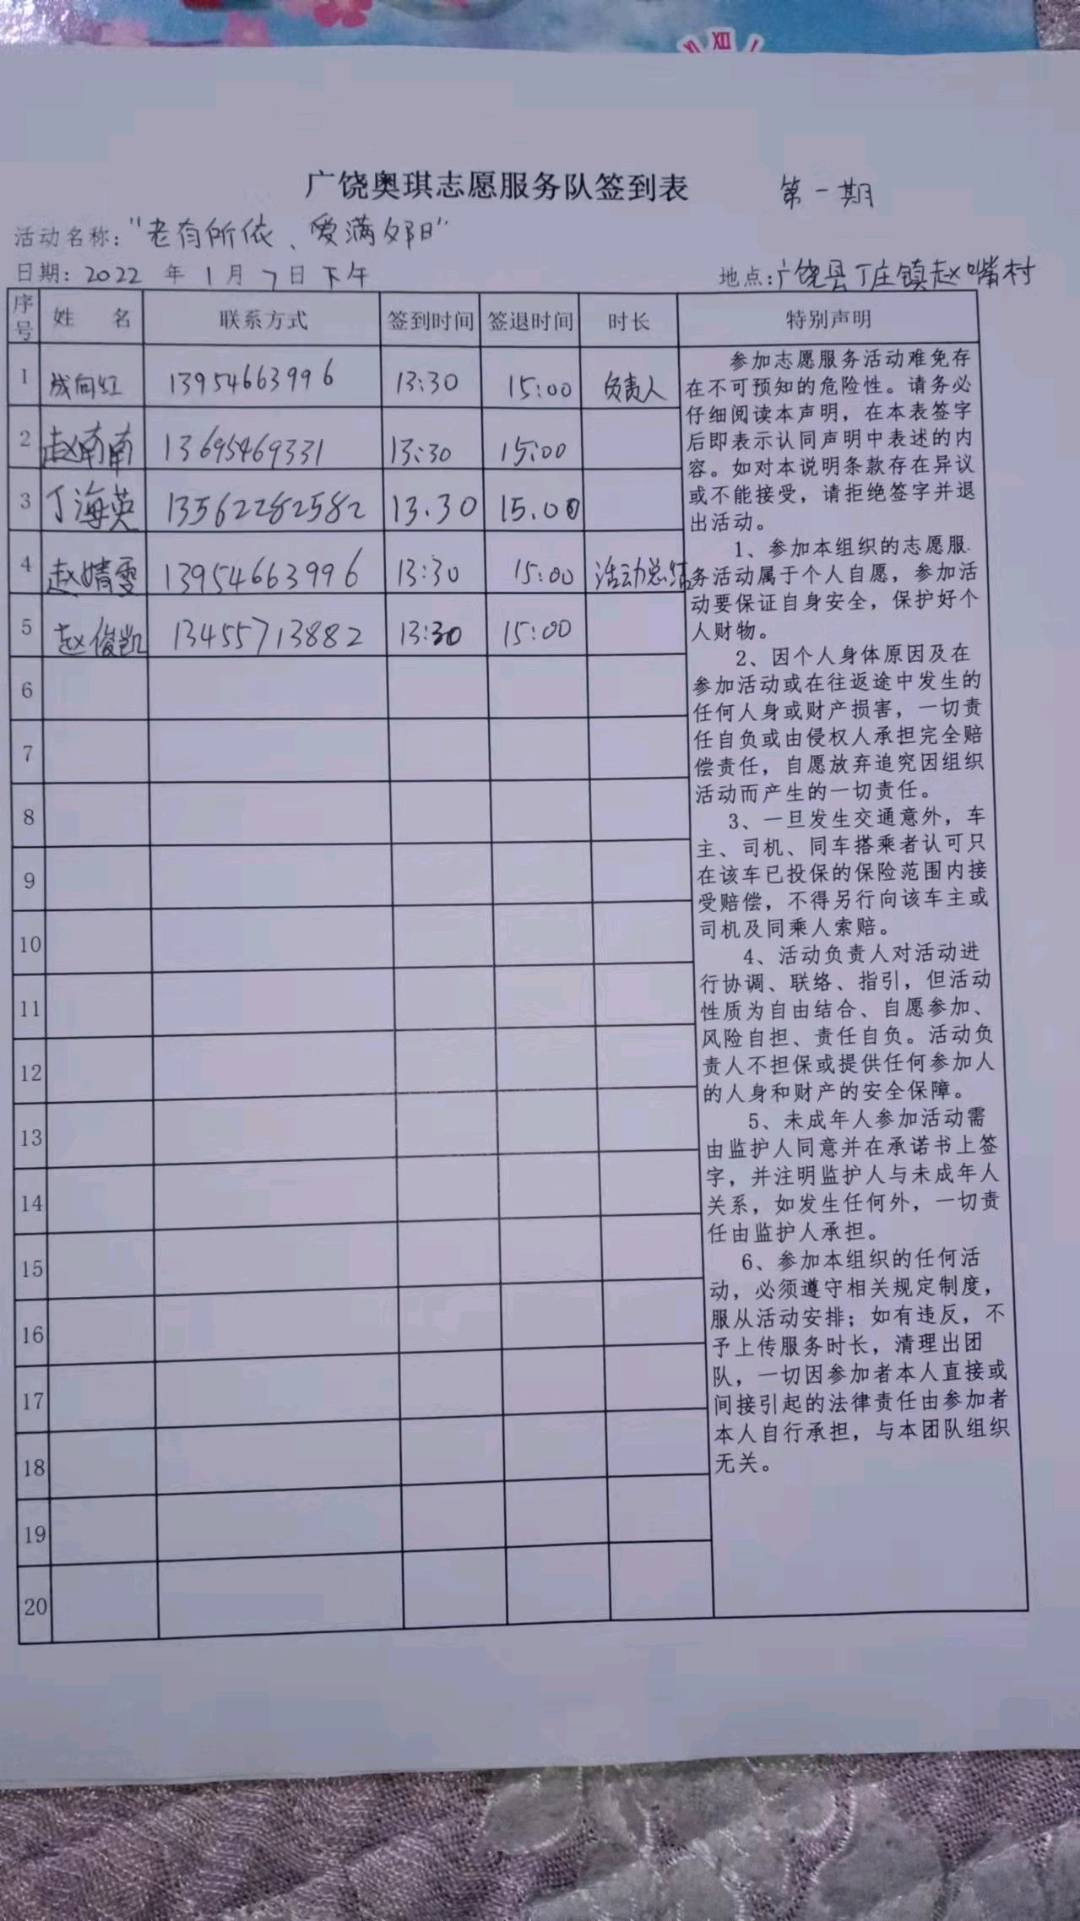 广饶奥琪志愿服务队签到表 第一期
活动名称："老有所依、爱满夕阳"
日期：2022 年 1 月 7 日 下午 地点：广饶县丁庄镇赵嘴村
序号 姓 名 联系方式 签到时间 签退时间 时长 特别声明
1 成向红 13954663996 13:30 15:00 负责人
2 赵南南 13695469331 13:30 15:00
3 丁海英 13562282582 13.30 15.00
4 赵婧雯 13954663996 13:30 15:00 活动总结
5 赵俊凯 13455713882 13:30 15:00
6
7
8
9
10
11
12
13
14
15
16
17
18
19
20
参加志愿服务活动难免存
在不可预知的危险性。请务必
仔细阅读本声明，在本表签字
后即表示认同声明中表述的内
容。如对本说明条款存在异议
或不能接受，请拒绝签字并退
出活动。
1、参加本组织的志愿服
务活动属于个人自愿，参加活
动要保证自身安全，保护好个
人财物。
2、因个人身体原因及在
参加活动或在往返途中发生的
任何人身或财产损害，一切责
任自负或由侵权人承担完全赔
偿责任，自愿放弃追究因组织
活动而产生的一切责任。
3、一旦发生交通意外，车
主、司机、同车搭乘者认可只
在该车已投保的保险范围内接
受赔偿，不得另行向该车主或
司机及同乘人索赔。
4、活动负责人对活动进
行协调、联络、指引，但活动
性质为自由结合、自愿参加、
风险自担、责任自负。活动负
责人不担保或提供任何参加人
的人身和财产的安全保障。
5、未成年人参加活动需
由监护人同意并在承诺书上签
字，并注明监护人与未成年人
关系，如发生任何外，一切责
任由监护人承担。
6、参加本组织的任何活
动，必须遵守相关规定制度，
服从活动安排；如有违反，不
予上传服务时长，清理出团
队，一切因参加者本人直接或
间接引起的法律责任由参加者
本人自行承担，与本团队组织
无关。